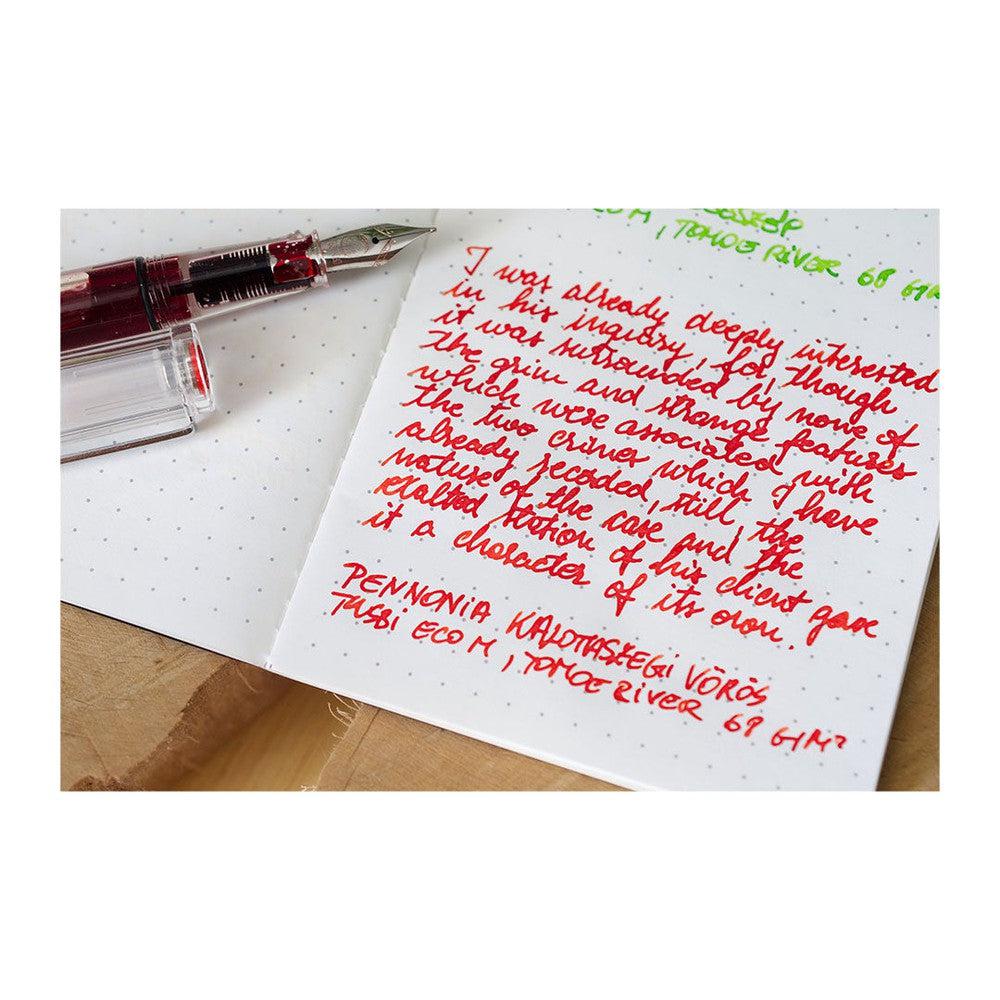 M, TOMOE RIVER 68 G/M
I was already deeply interested
in his inquiry, for, though
it was surrounded by none of
the grim and strange features
which were associated with
the two crimes which I have
already recorded, still, the
nature of the case and the
exalted station of his client gave
it a character of its own.
PENNONIA KALOTASZEGI VÖRÖS
TWSBI ECO M, TOMOE RIVER 68 G/M²